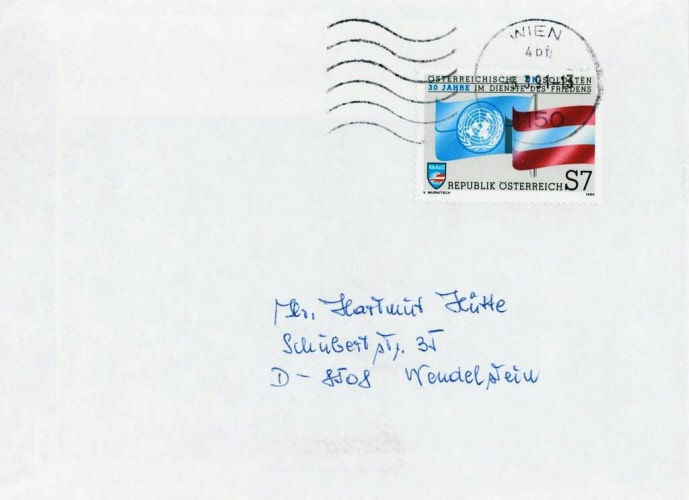 WIEN
150
ÖSTERREICHISCHE UN SOLDATEN
30 JAHRE IM DIENSTE DES FRIEDENS
REPUBLIK ÖSTERREICH S7
Hr. Hartmut Hütte
Schubertstr. 35
D - 8508 Wendelstein